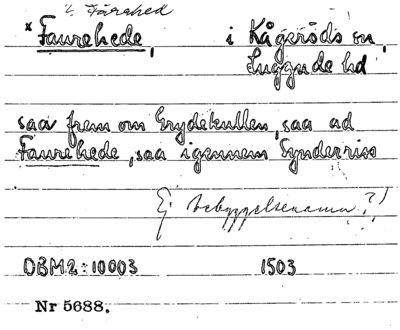 ? Fårahed
* Faurehede, i Kågeröds sn,
Luggude hd
saa frem om Grydekullen, saa ad
Faurehede, saa igennem Synderriss
Ej bebyggelsenamn?!
DBM2:10003 1503
Nr 5688.